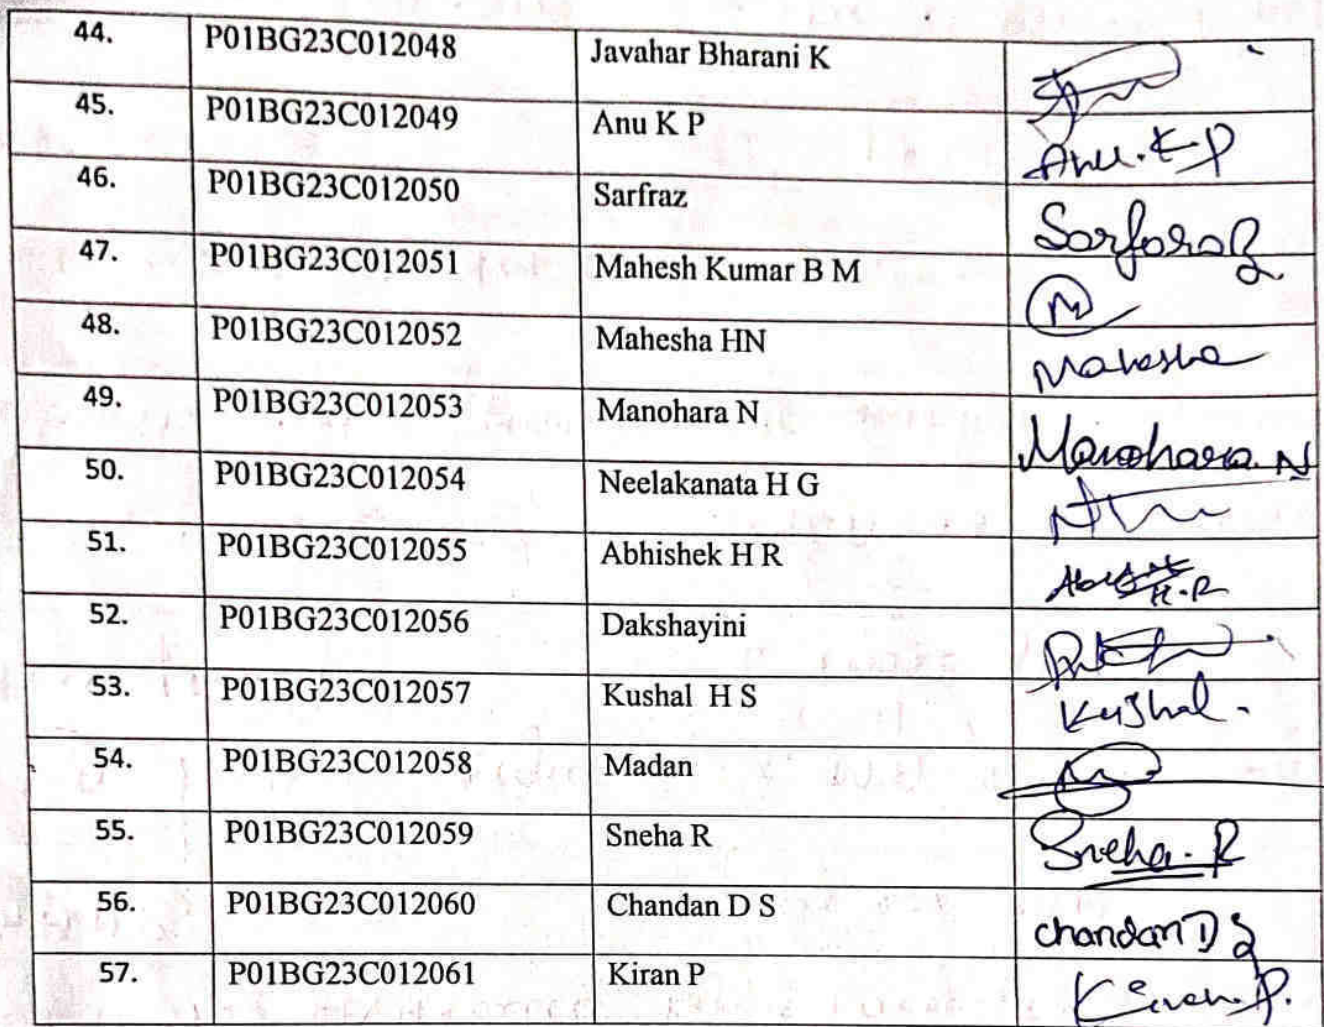 44. P01BG23C012048 Javahar Bharani K
45. P01BG23C012049 Anu K P Anu. K P
46. P01BG23C012050 Sarfraz Sarfaraz
47. P01BG23C012051 Mahesh Kumar B M M
48. P01BG23C012052 Mahesha HN Mahesha
49. P01BG23C012053 Manohara N Manohara. N
50. P01BG23C012054 Neelakanata H G
51. P01BG23C012055 Abhishek H R H.R
52. P01BG23C012056 Dakshayini
53. P01BG23C012057 Kushal H S Kushal.
54. P01BG23C012058 Madan
55. P01BG23C012059 Sneha R Sneha. R
56. P01BG23C012060 Chandan D S chandan D S
57. P01BG23C012061 Kiran P Kiran. P.